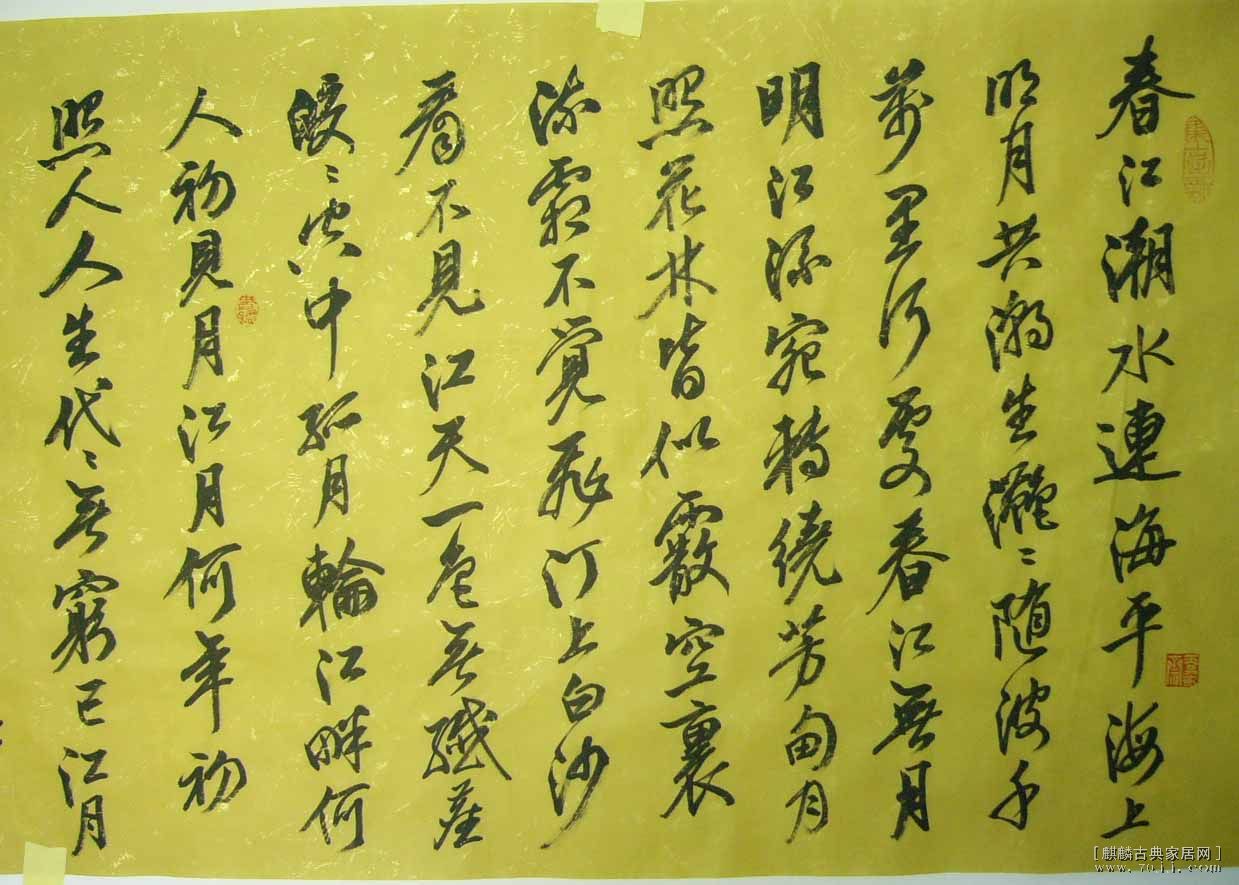 春江潮水連海平海上
明月共潮生灧〻随波千
萬里何處春江無月
明江流宛轉繞芳甸月
照花林皆似霰空裏
流霜不覺飛汀上白沙
看不見江天一色無纖塵
皎〻空中孤月輪江畔何
人初見月江月何年初
照人人生代〻無窮已江月
[麒麟古典家居网]
www.70jj.com